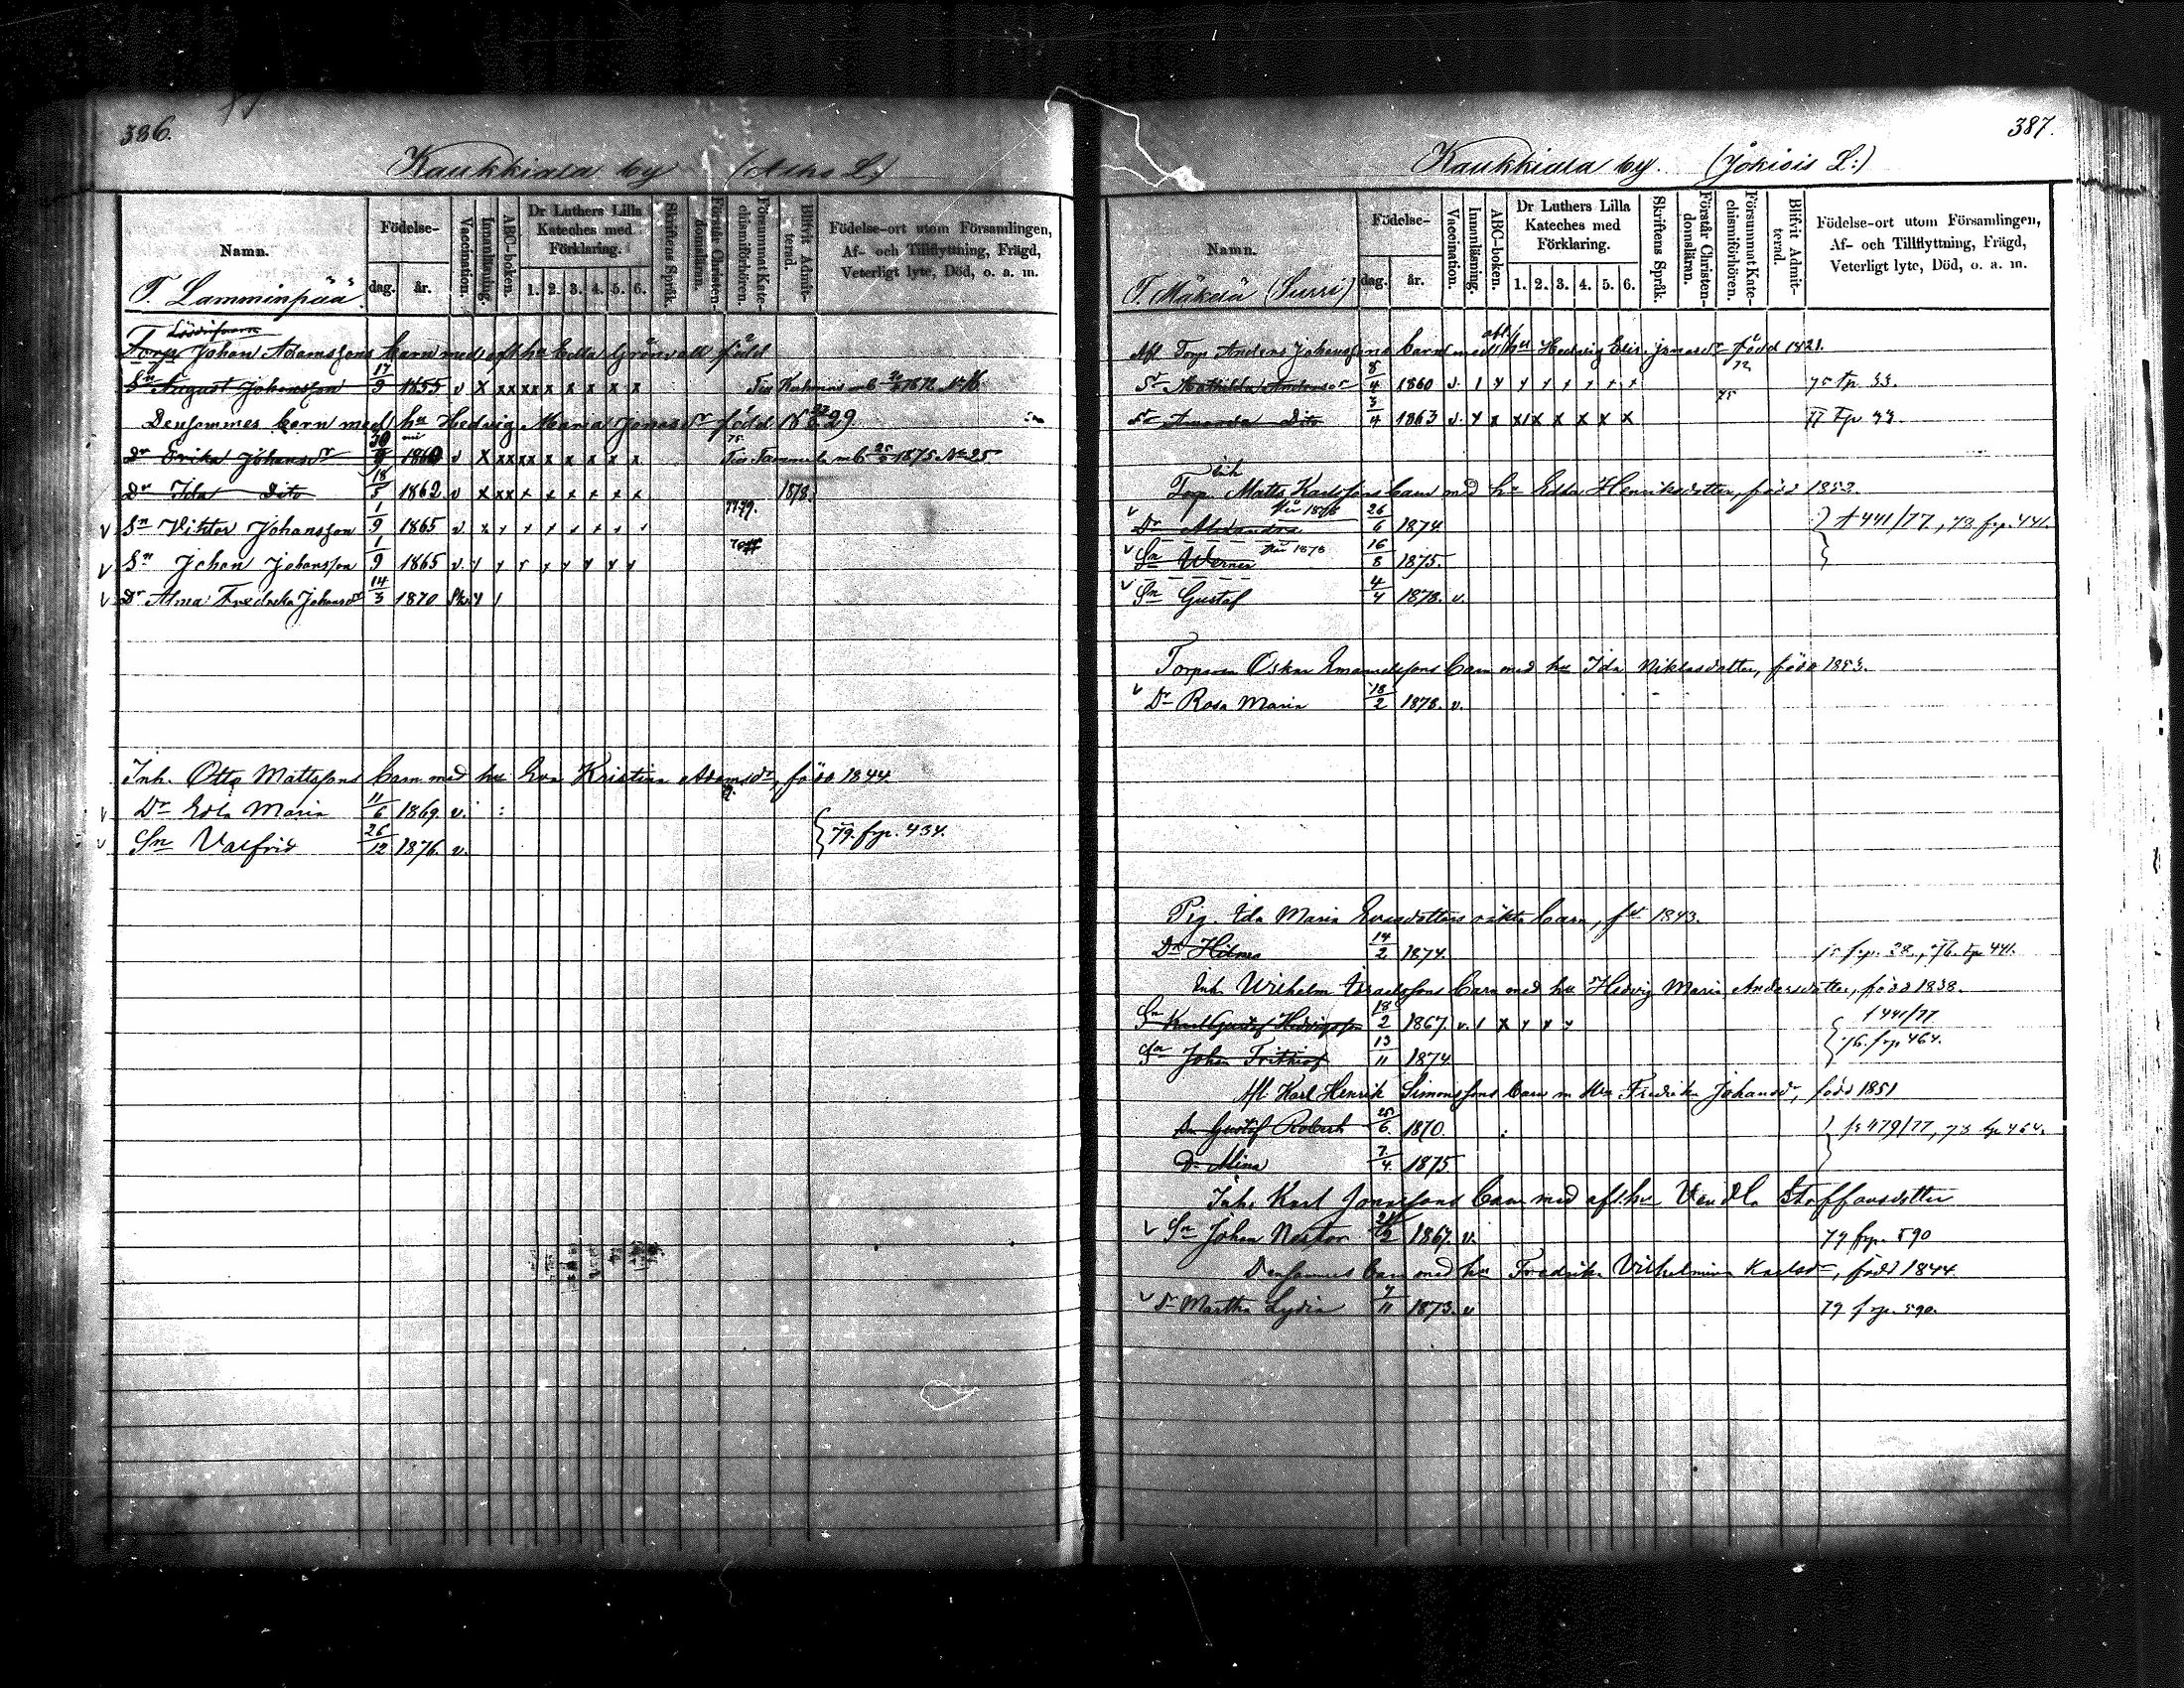 386.
Kaukkiala by
Namn.
Födelse-
dag. år.
Vaccination.
Innanläsning.
ABC-boken.
Dr Luthers Lilla Kateches med Förklaring.
1. 2. 3. 4. 5. 6.
Skriftens Språk.
Förstår Christendomsläran.
Försummat Katechismiförhören.
Blifvit Admitterad.
Födelse-ort utom Församlingen, Af- och Tillflyttning, Frägd, Veterligt lyte, Död, o. a. m.
T. Lamminpää
Torp. Johan Adamssons barn med afl hu Grönvall född
Sn August Johansson 17/9 1855 v x xx xx x x x x x
Densammes barn med hu Hedvig Maria Jonasdr född 1829
Dr Erika Johansdr 30/9 1860 v x xx xx x x x x x Till Tammela 1875 No 25
Dr Ida Dito 18/5 1862 v x xx x x x x x x 1878.
v Sn Viktor Johansson 1/9 1865 v. x x x x x x x 77.79.
v Sn Johan Johansson 1/9 1865 v. x x x x x x x
v Dr Alma Fredrika Johansdr 14/3 1870
Inh. Otto Mattssons barn med hu Eva Kristina Adamsdr, född 1844.
v Dr Edla Maria 11/6 1869. v.
v Sn Valfrid 26/12 1876. v. 79. frp. 434.
387.
Kaukkiala by. (Jokiois L:)
Namn.
Födelse-
dag. år.
Vaccination.
Innanläsning.
ABC-boken.
Dr Luthers Lilla Kateches med Förklaring.
1. 2. 3. 4. 5. 6.
Skriftens Språk.
Förstår Christendomsläran.
Försummat Katechismiförhören.
Blifvit Admitterad.
Födelse-ort utom Församlingen, Af- och Tillflyttning, Frägd, Veterligt lyte, Död, o. a. m.
T. Mäkelä (Surri)
Afl. Torp Anders Johanssons barn med afl. hu Hedvig Elis. Jonasdr född 1821.
Dr Mathilda Andersdr 8/4 1860 v.
Dr Amanda Dito 3/4 1863 v. x x x x x x x x
inh
Torp. Matts Karlssons barn med hu Edla Henriksdotter, född 1853.
v Dr Alexandra 26/6 1874 441/77, 78 frp. 441.
v Sn Werner 16/8 1875.
v Sn Gustaf 4/4 1878. v.
Torparen Oskar Emanuelssons barn med hu Ida Niklasdotter, född 1853.
v Dr Rosa Maria 18/2 1878. v.
Pig. Ida Maria oäkta barn, fd 1843.
Dr Hilma 14/2 1874.
Inh. Wilhelm Israelssons barn med hu Hedvig Maria Andersdotter, född 1838.
Sn Karl Gustaf 18/2 1867. v. 441/77
Sn Johan Frithiof 13/11 1874 76. frp 464.
Afl. Karl Henrik Simonssons barn m hu Fredrika Johansdr, född 1851
Sn Gustaf Robert 25/6. 1870. 479/77, 78 frp 464.
Dr Alina 7/4. 1875
Inh. Karl Jonassons barn med afl. hu Vendla Staffansdotter
v Sn Johan Nestor 1867. v. 79 frp. 590
Densammes barn med hu Fredrika Vilhelmina Karlsdr, född 1844.
v Dr Martha Lydia 7/11 1873. v 79 frp. 590.